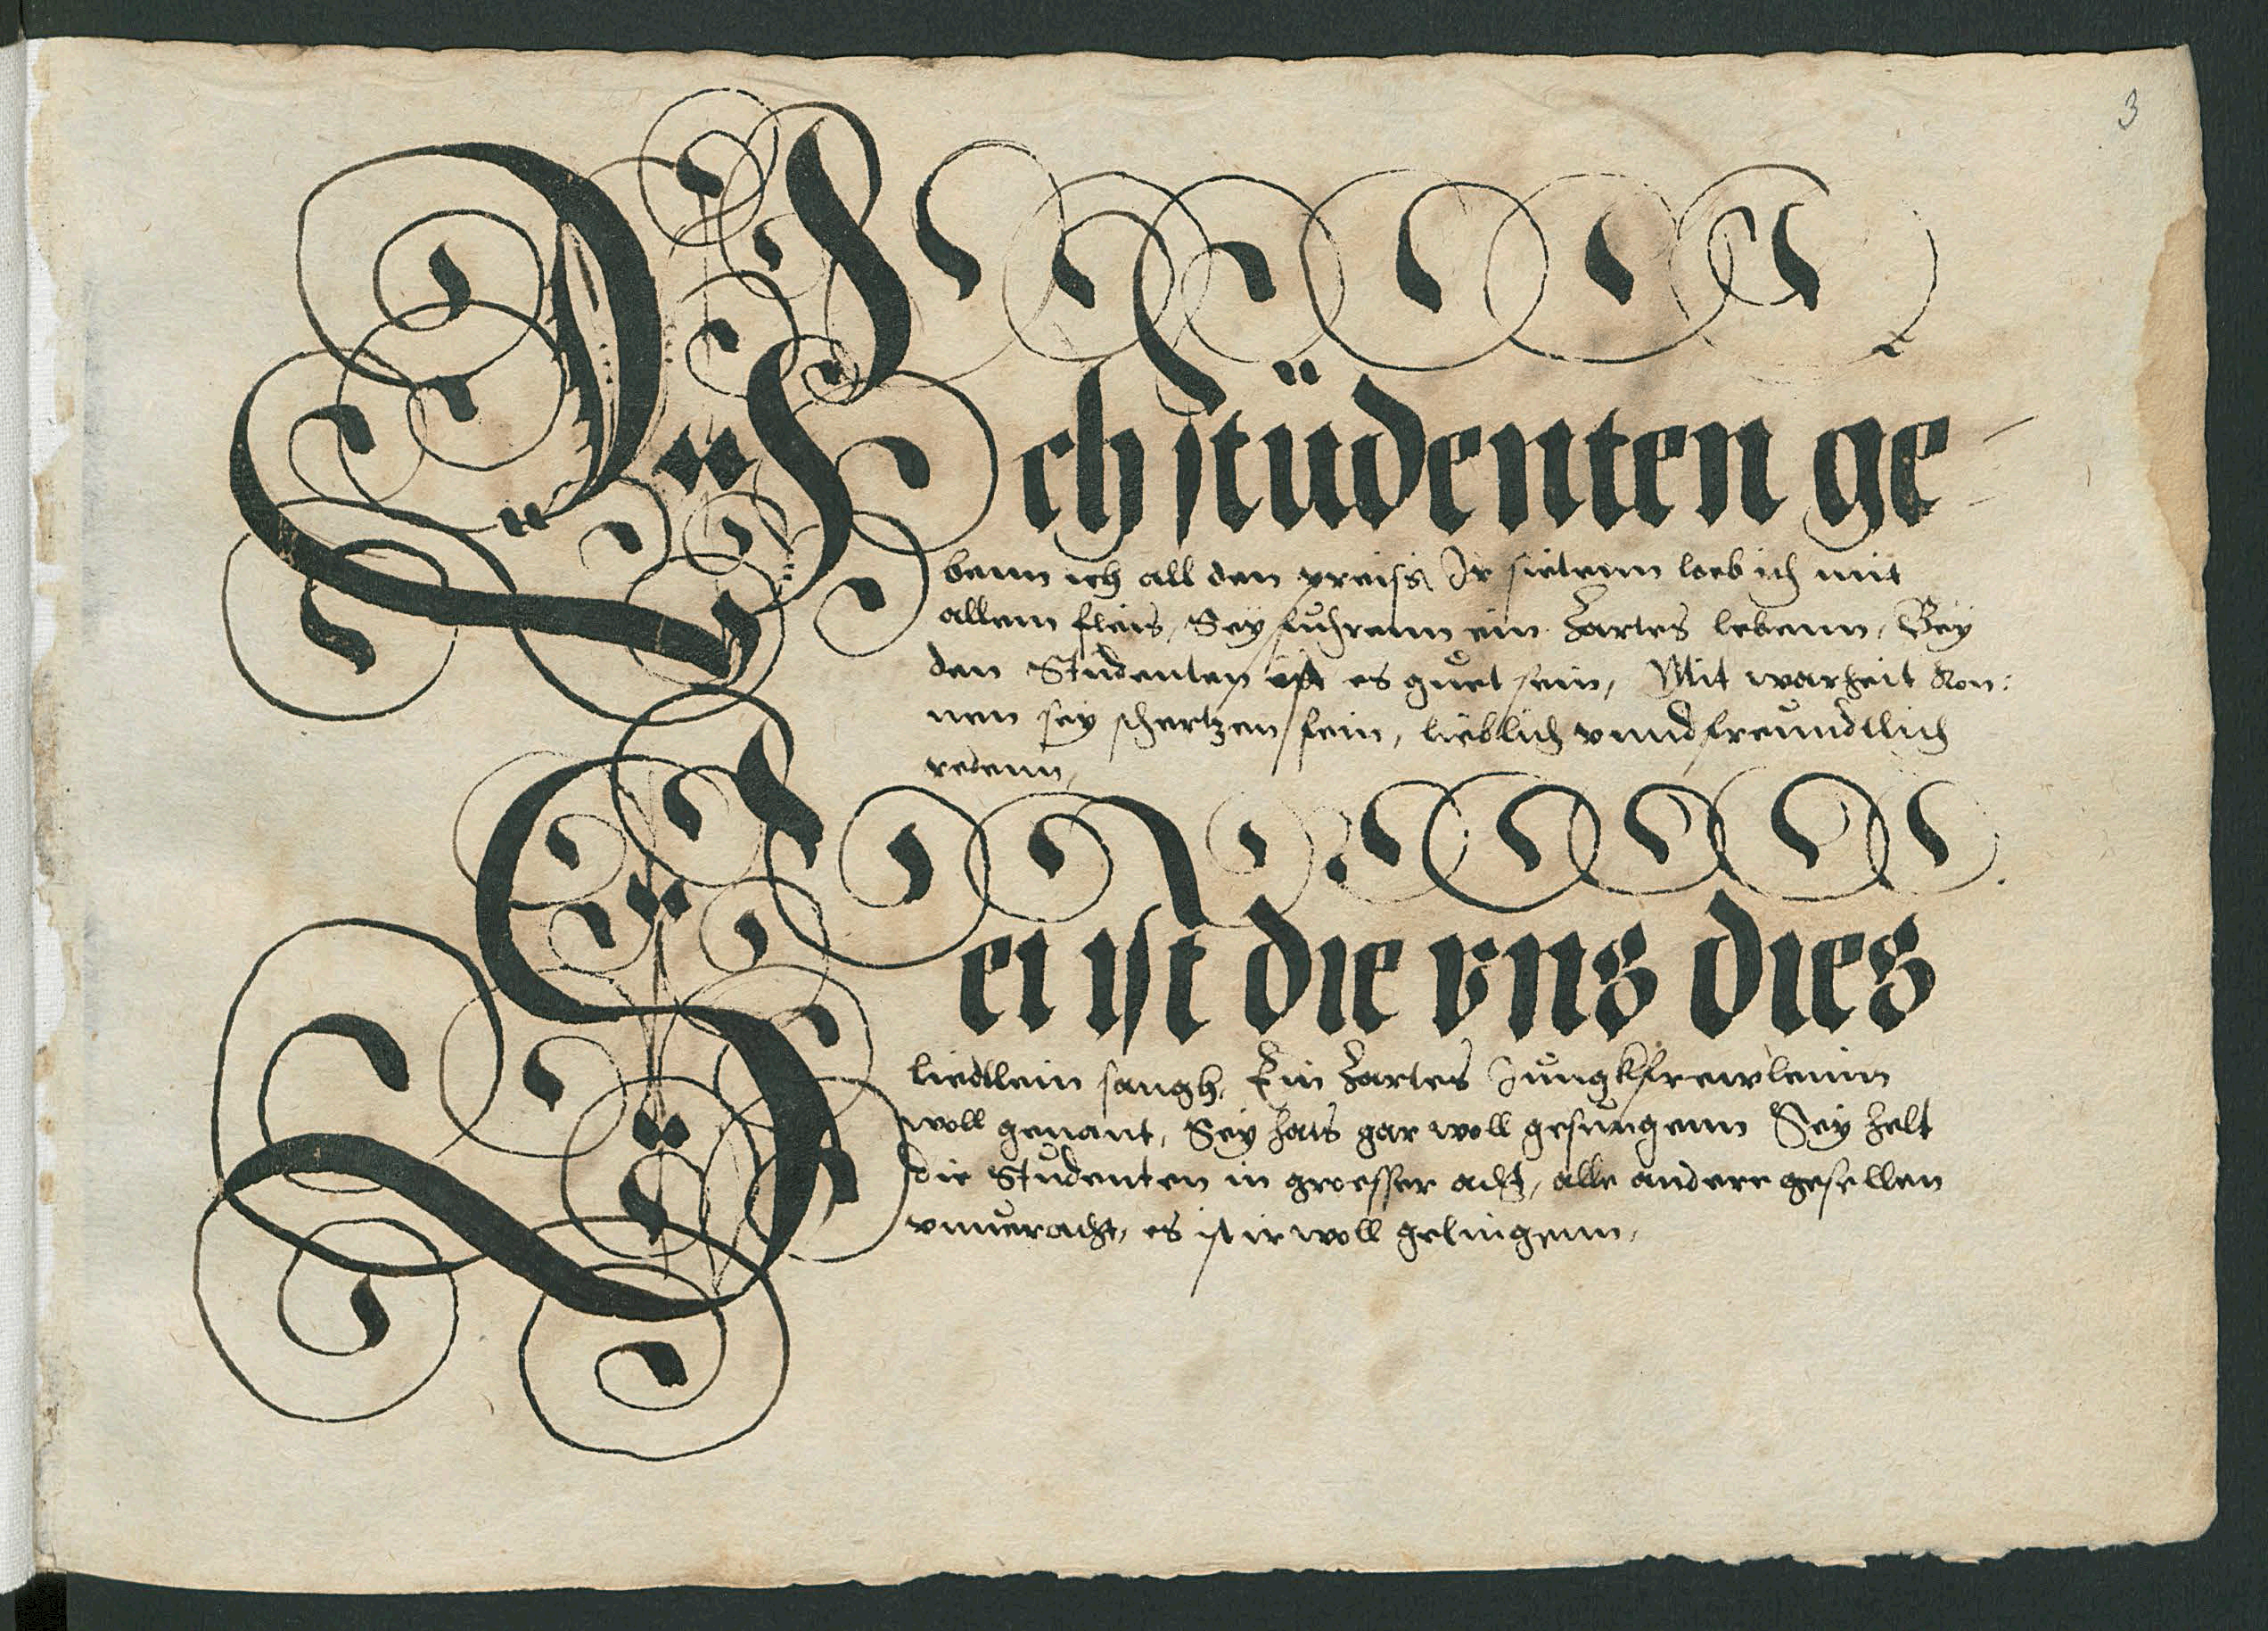 3
Ach stüdenten ge
benn ich all den preiss Ir sietenn lob ich mit
allem fleis, Sey fuhrenn ein zartes lebenn, Bey
den Studenten ist es guet sein, Mit warheit kon:
nen sey schertzen fein, lieblich vnnd freundtlich
redenn,
Sei ist die vns dies
liedlein sangh, Ein zartes Jungkfrewlein
woll genant, Sey hats gar woll gesungenn Sey helt
die Studenten in groesser acht, alle andere gesellen
vnueracht, es ist ir woll gelungenn,